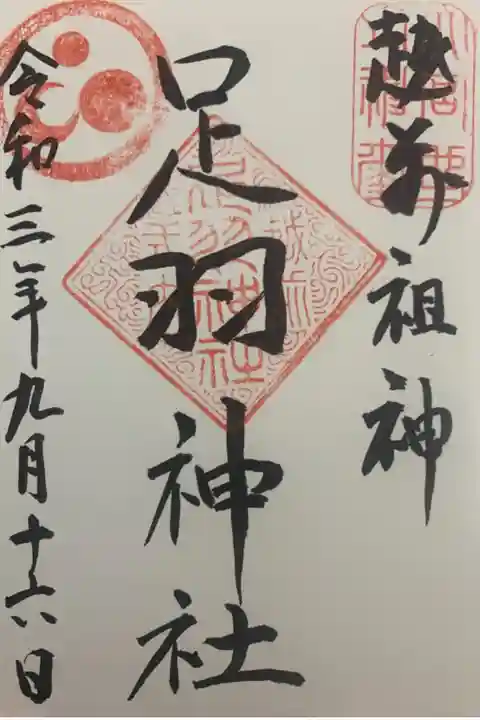 越前祖神
足羽神社
令和三年九月十六日